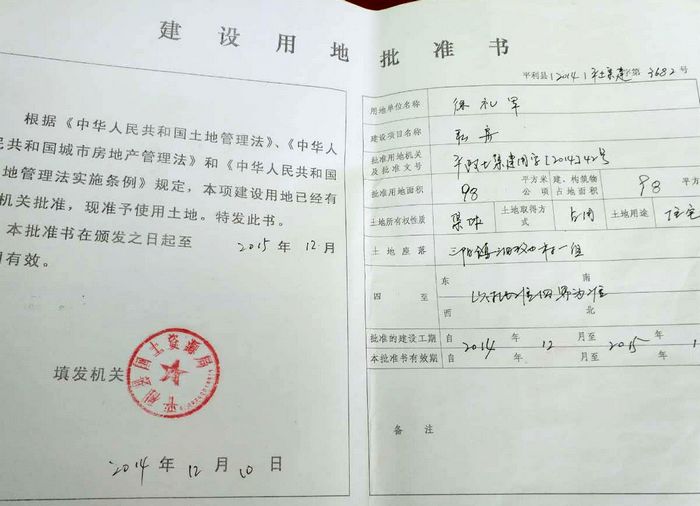 建设用地批准书
根据《中华人民共和国土地管理法》、《中华人
民共和国城市房地产管理法》和《中华人民共和国
地管理法实施条例》规定，本项建设用地已经有
机关批准，现准予使用土地。特发此书。
本批准书在颁发之日起至 2015 年 12 月
有效。
填发机关
平利县国土资源局
2014 年 12 月 10 日
平利县（2014）平土集建字第 3682 号
用地单位名称 徐礼军
建设项目名称
批准用地机关及批准文号 集建用字[2014]42号
批准用地面积 98 平方米 公顷 建、构筑物占地面积 98 平方
土地所有权性质 集体 土地取得方式 占用 土地用途 住宅
土地座落 三阳镇 村一组
四至 东 南 西 北 四界为准
批准的建设工期 自 2014 年 12 月至 2015 年 1
本批准书有效期 自 年 月至 年
备注